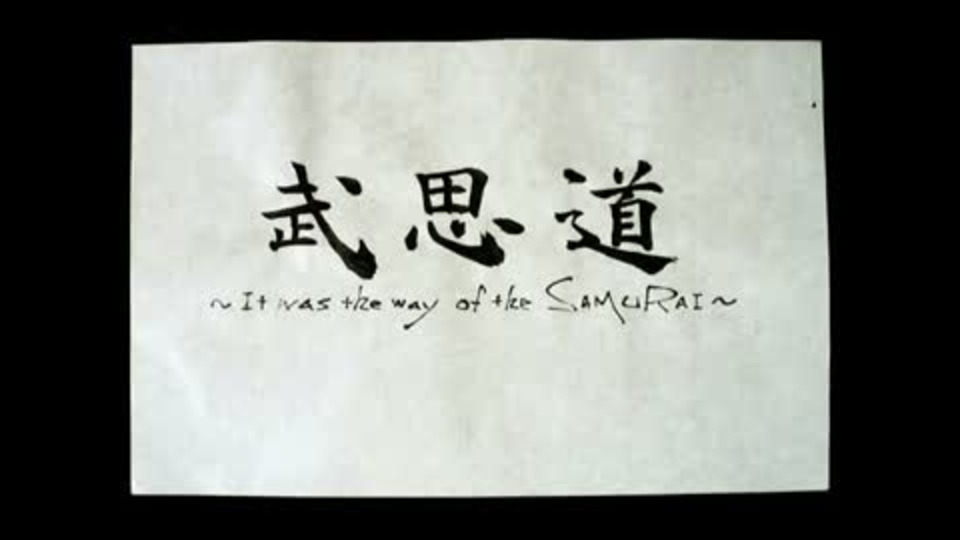 武思道
~It was the way of the SAMURAI~